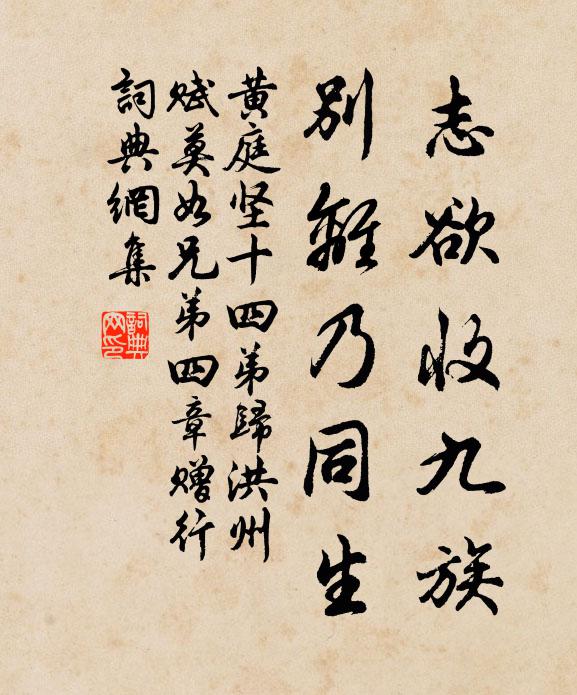 志欲收九族
别離乃同生
黄庭坚十四弟歸洪州
赋莫如兄弟四章赠行
詞典網集
詞典
网印